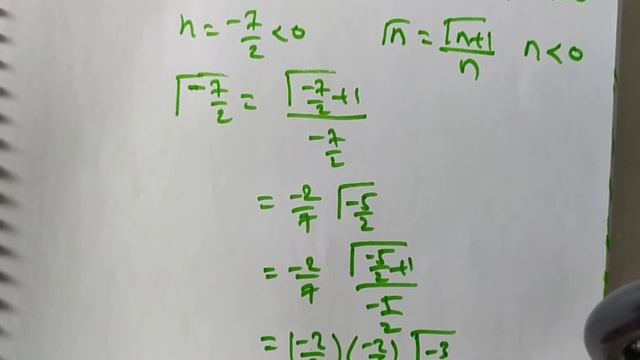 n = -7/2 < 0    Γn = Γn+1/n    n < 0
Γ-7/2 = Γ-7/2+1 / -7/2
= -2/7 Γ-5/2
= -2/7 Γ-5/2+1 / -5/2
= (-2/